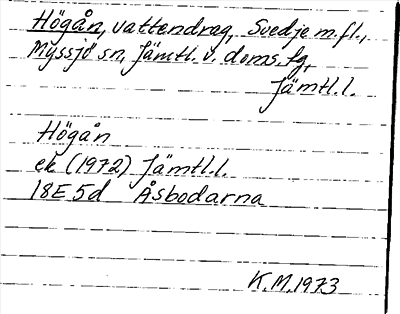 Högån, vattendrag, Svedje m.fl.,
Myssjö sn, Jämtl. v. doms. fg,
Jämtl. l.
Högån
ek (1972) Jämtl. l.
18E 5d Åsbodarna
K.M. 1973